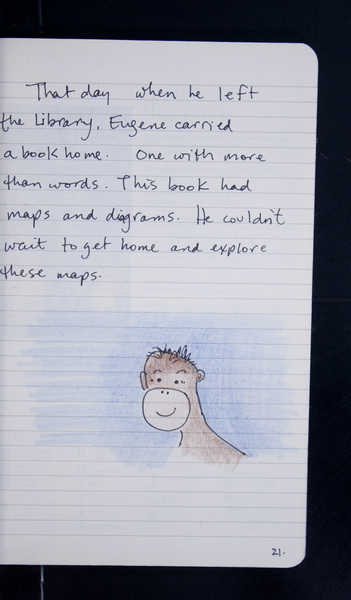 That day when he left
the Library, Eugene carried
a book home. One with more
than words. This book had
maps and diagrams. He couldn't
wait to get home and explore
these maps.
21.